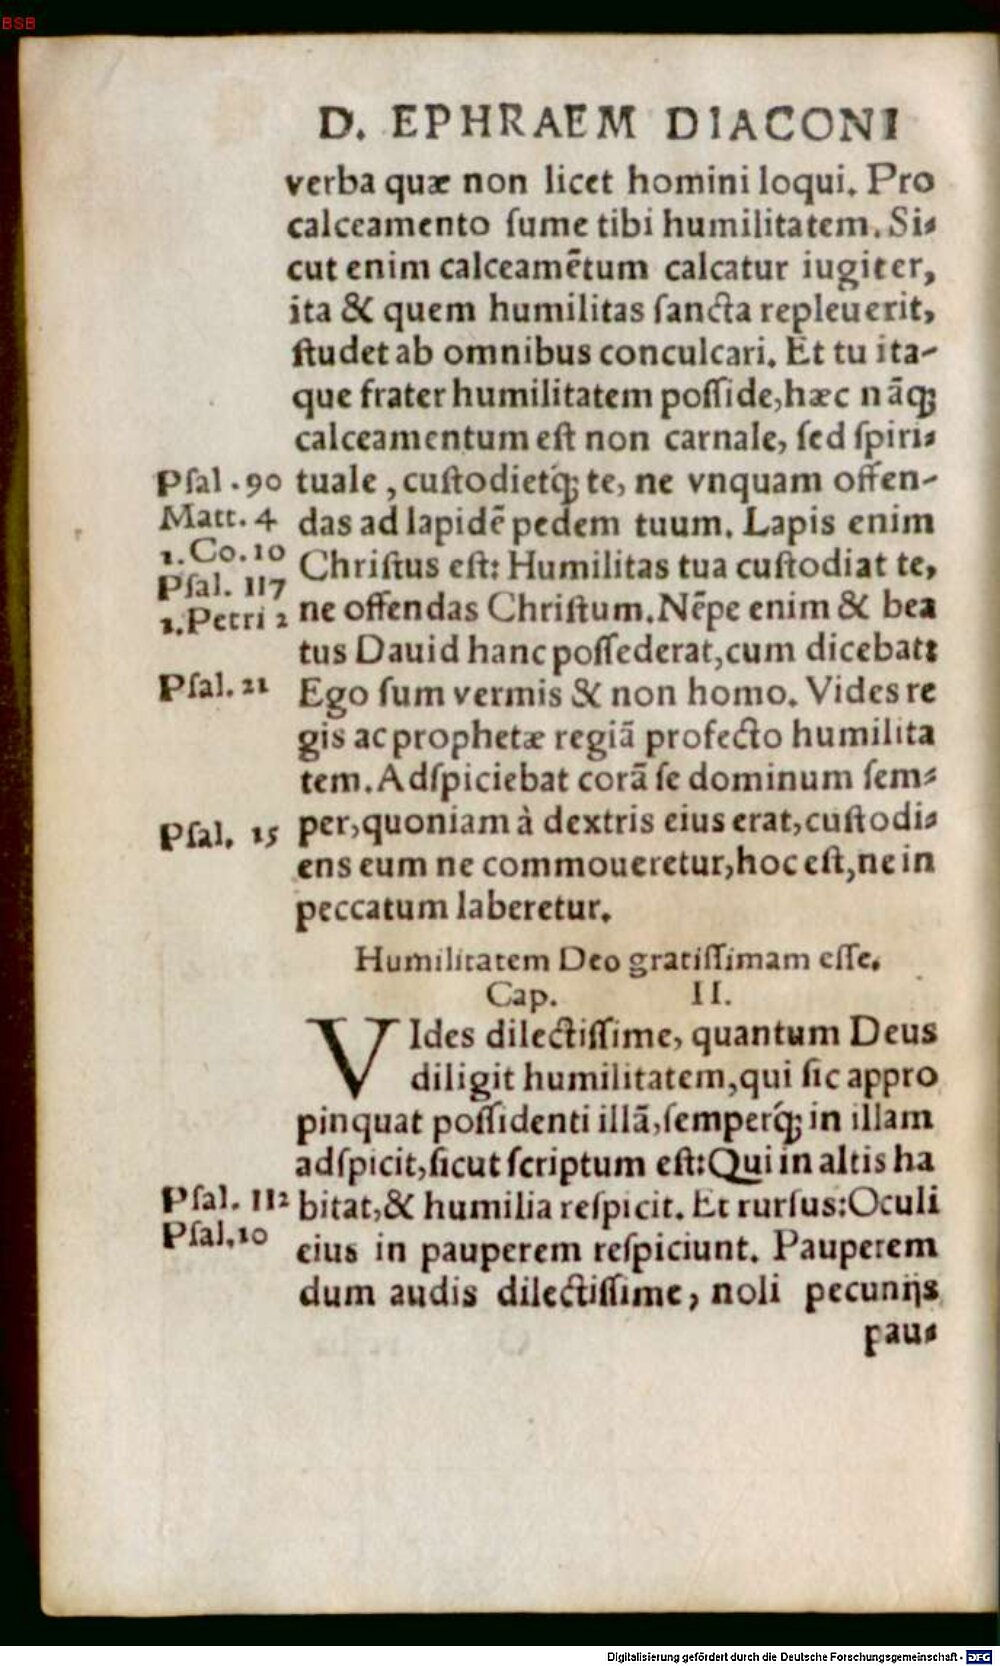 BSB
D. EPHRAEM DIACONI
verba quæ non licet homini loqui. Pro
calceamento ſume tibi humilitatem. Si⸗
cut enim calceamẽtum calcatur iugiter,
ita & quem humilitas ſancta repleuerit,
ſtudet ab omnibus conculcari. Et tu ita-
que frater humilitatem poſſide, hæc nãq;
calceamentum eſt non carnale, ſed ſpiri⸗
Pſal. 90 tuale, cuſtodietq́; te, ne vnquam offen-
Matt. 4 das ad lapidẽ pedem tuum. Lapis enim
1. Co. 10
Pſal. 117 Chriſtus eſt: Humilitas tua cuſtodiat te,
1. Petri 2 ne offendas Chriſtum. Nẽpe enim & bea
tus Dauid hanc poſſederat, cum dicebat:
Pſal. 21 Ego ſum vermis & non homo. Vides re
gis ac prophetæ regiã profecto humilita
tem. Adſpiciebat corã ſe dominum ſem⸗
Pſal. 15 per, quoniam à dextris eius erat, cuſtodi⸗
ens eum ne commoueretur, hoc eſt, ne in
peccatum laberetur.
Humilitatem Deo gratiſſimam eſſe.
Cap. II.
VIdes dilectiſſime, quantum Deus
diligit humilitatem, qui ſic appro
pinquat poſſidenti illã, ſemperq́; in illam
adſpicit, ſicut ſcriptum eſt: Qui in altis ha
Pſal. 112 bitat, & humilia reſpicit. Et rurſus: Oculi
Pſal. 10 eius in pauperem reſpiciunt. Pauperem
dum audis dilectiſſime, noli pecunijs
pau⸗
Digitalisierung gefördert durch die Deutsche Forschungsgemeinschaft - DFG